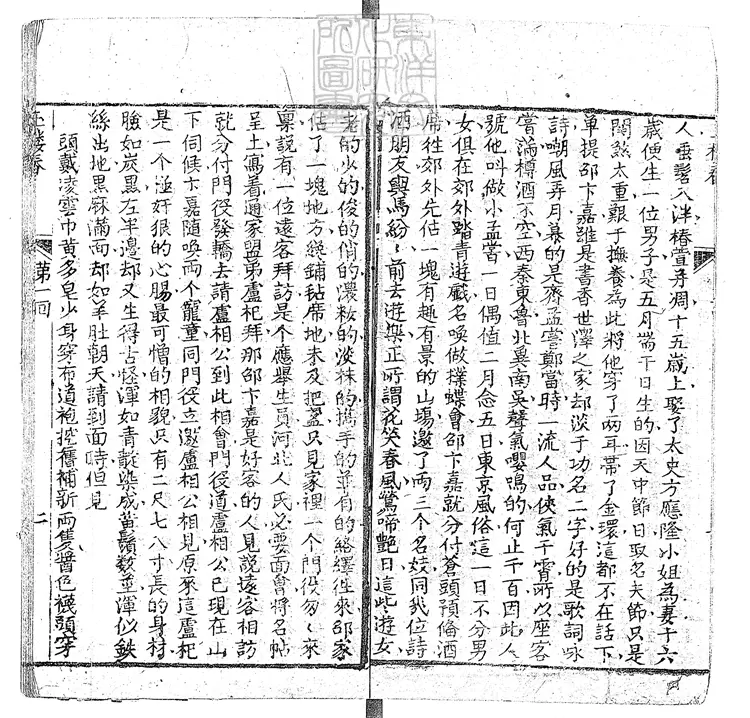 人垂髫入泮椿萱并凋十五歲上娶了太史方應隆小姐為妻于六
歲便生一位男子是五月端午日生的因天中節日取名夫節只是
關煞太重艱于撫養為此將他穿了兩耳帶了金環這都不在話下
單提邵卞嘉雖是書香世澤之家却淡于功名二字好的是歌詞咏
詩嘲風弄月慕的是齊孟嘗鄭當時一流人品俠氣干霄所以座客
嘗滿樽酒不空西秦東魯北冀南吳聲氣嚶鳴的何止千百因此人
號他叫做小孟嘗一日偶值二月念五日東京風俗這一日不分男
女俱在郊外踏青遊戲名喚做撲蝶會邵卞嘉就分付蒼頭預備酒
席往郊外先佔一塊有趣有景的山場邀了兩三個名妓同幾位詩
酒朋友輿馬紛〻前去遊樂正所謂花笑春風鶯啼艷日這些遊女
老的少的俊的俏的濃粧的淡抹的携手的並肩的絡繹往來邵家
佔了一塊地方纔鋪毡席地未及把盞只見家裡一个門役匆〻來
稟說有一位遠客拜訪是个應舉生員河北人氏必要面會將名帖
呈上寫着通家盟弟盧杞拜那邵卞嘉是好客的人見說遠客相訪
就分付門役發轎去請盧相公到此相會門役道盧相公已現在山
下伺候卞嘉隨喚兩个寵童同門役立邀盧相公相見原來這盧杞
是一个極奸很的心腸最可憎的相貌只有二尺七八寸長的身材
臉如炭黑左半邊却又生得古怪渾如青靛染成黃鬚数莖渾似鉄
絲出地黑麻滿面却如羊肚朝天請到面時但見
頭戴凌雲巾黄多皂少身穿布道袍挖舊補新兩隻醬色襪頭穿
第一回
二